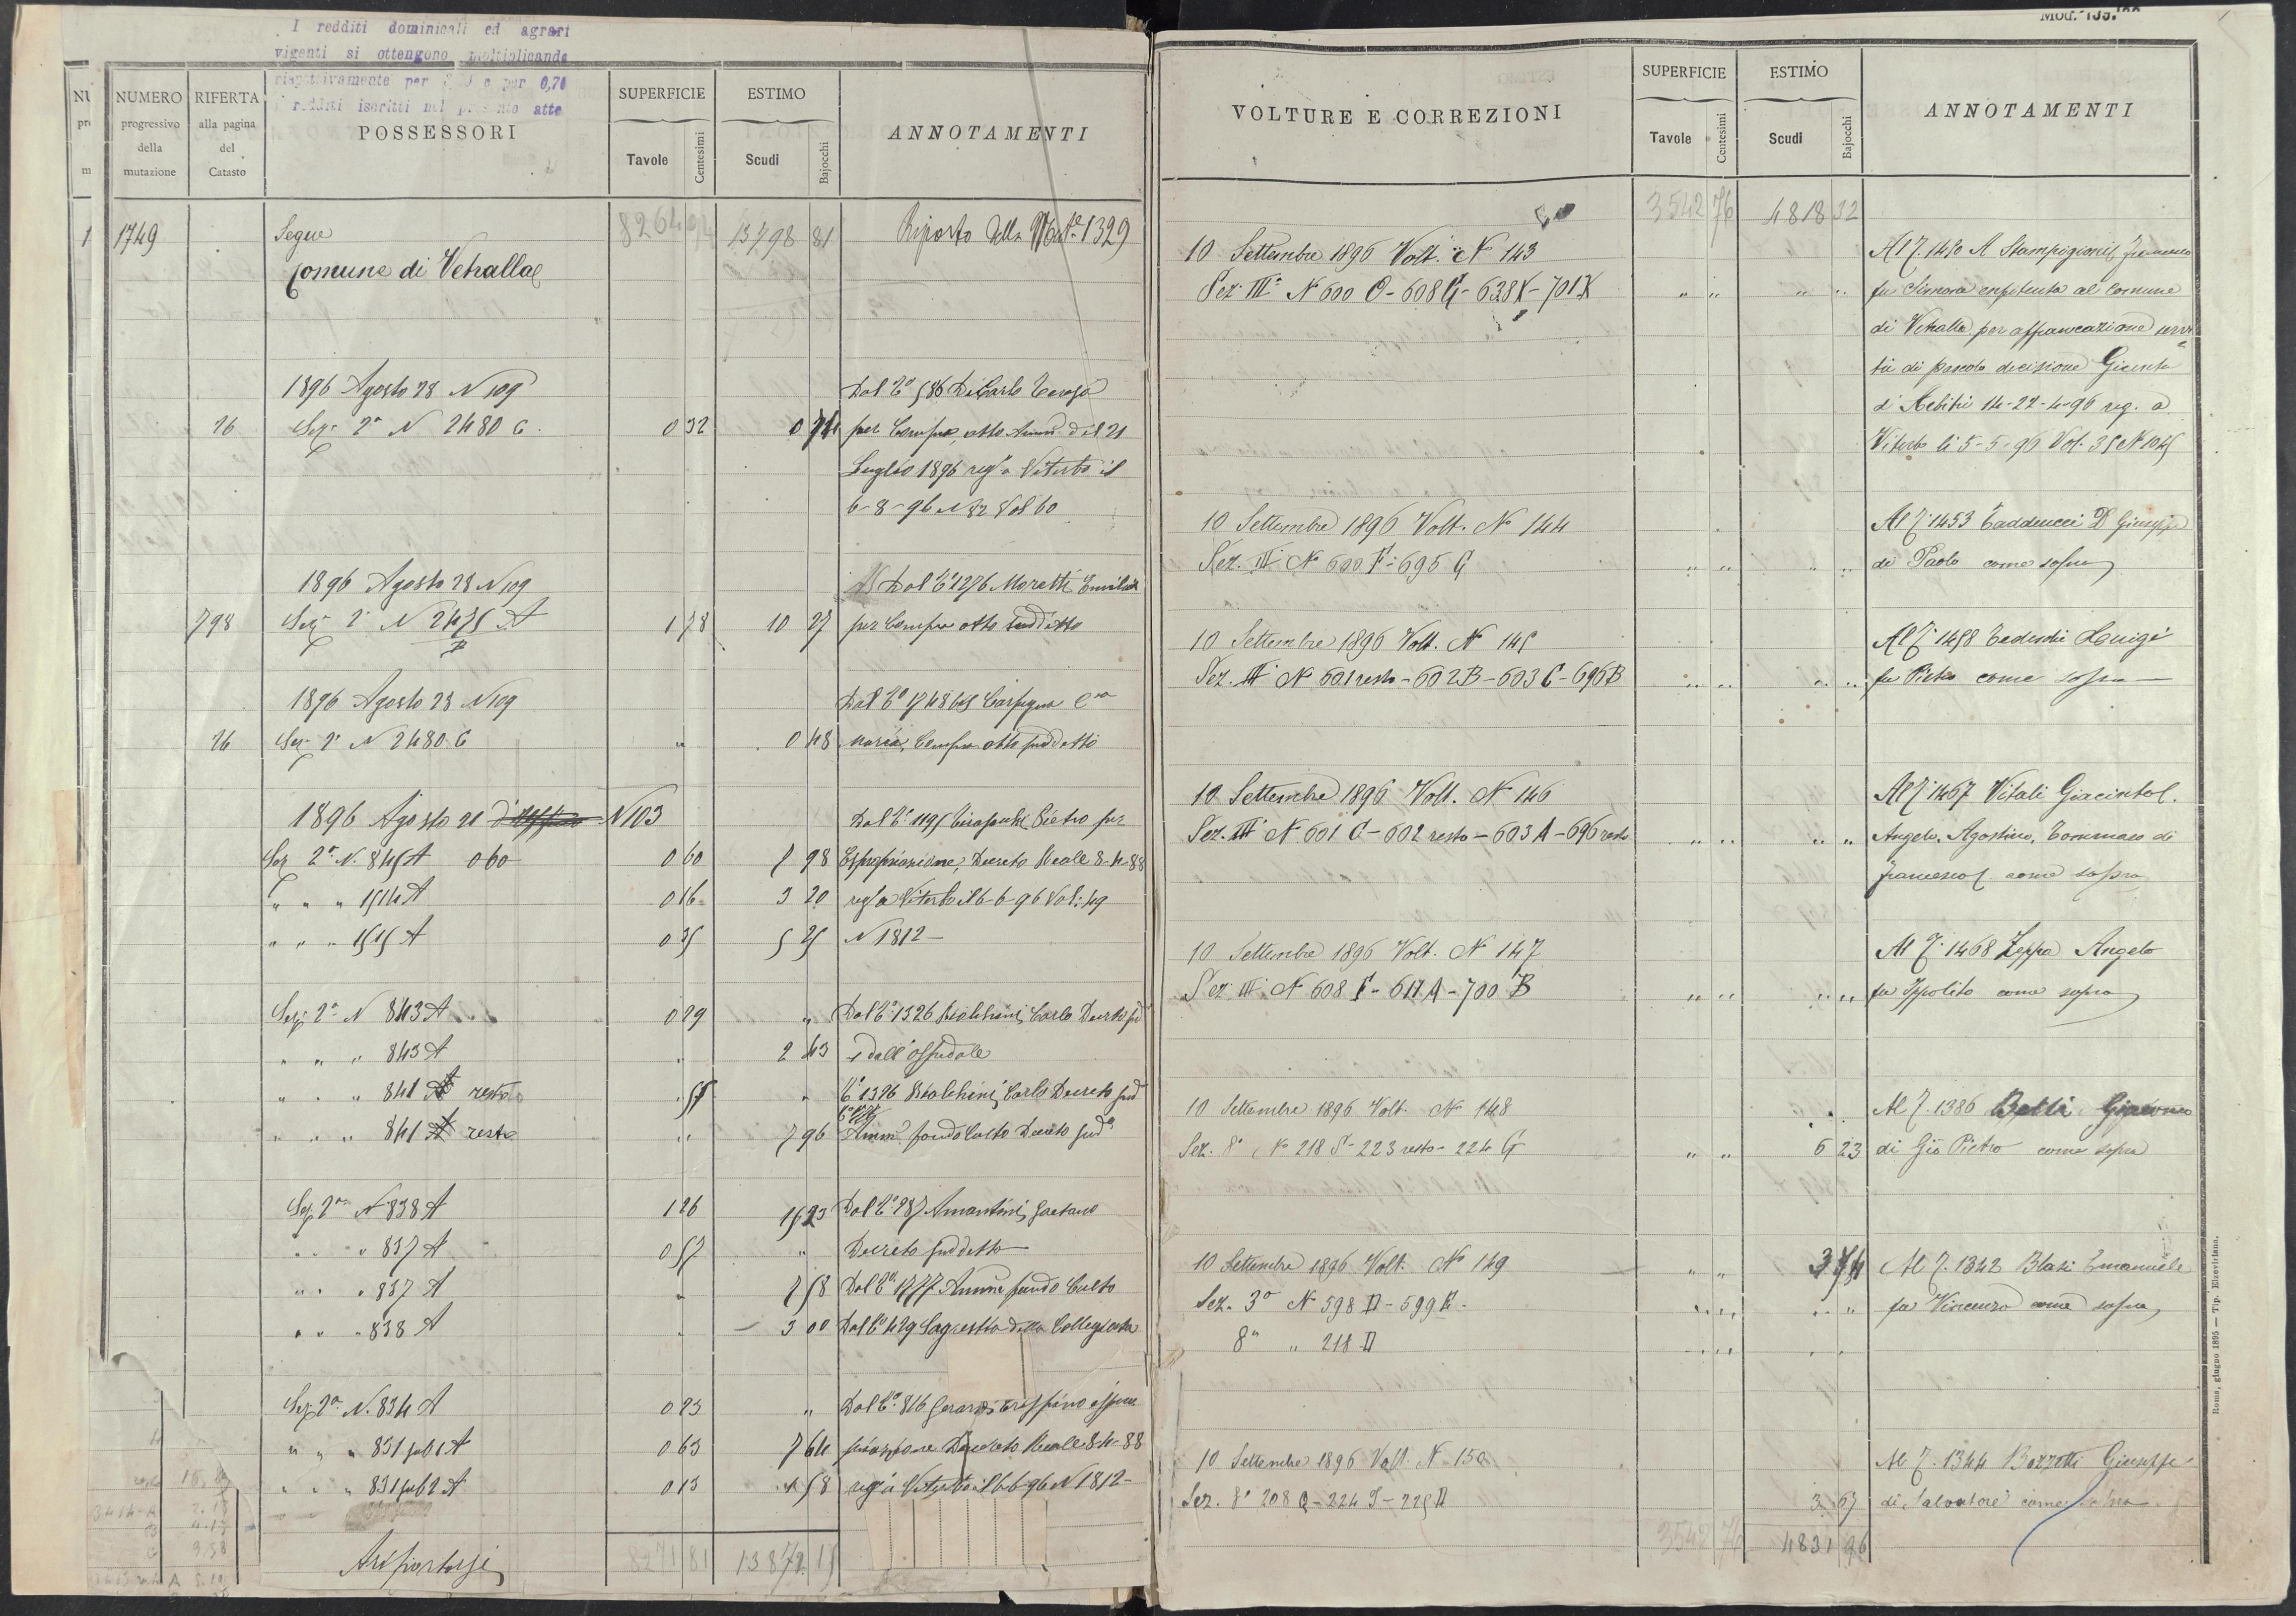 I redditi dominicali ed agrari
vigenti si ottengono moltiplicando
rispettivamente per e per 0,70
i redditi iscritti nel presente atto
NUMERO progressivo della mutazione
RIFERTA alla pagina del Catasto
POSSESSORI
SUPERFICIE Tavole Centesimi
ESTIMO Scudi Bajocchi
ANNOTAMENTI
1749 Segue 8264 13798 81 Riporto della 1329
Comune di Vetralla
1896 Agosto 28 N 109 Dal C° 586 DiCarlo Teresa
26 Sez. 2ª N 2480 C. 0 32 0 74 per Compra, atto Amm. del 21
Luglio 1896 reg° a Viterbo il
6-8-96 N 82 Vol 60
1896 Agosto 28 N 109 Dal C° 1276 Moretti
798 Sez. 2ª N 2475 A 1 78 10 27 per Compra atto suddetto
B
1896 Agosto 28 N 109 Dal C°
26 Sez. 2ª N 2480 C " 0 48 Maria, Compra atto suddetto
1896 Agosto 21 N 103 Dal C° 1195 Pietro per
Sez 2ª N. 845 A 0 60 0 60 98 Espropriazione, Decreto Reale 8-4-88
" " " 1514 A 0 16 3 20 reg° a Viterbo il 6-6-96 Vol. 49
" " " 1515 A 0 35 5 25 N 1812 -
Sez. 2ª N 843 A 0 29 " Dal C° 1326 Carlo Decreto
" " " 843 A " 2 43 e dall'ospedale
" " " 841 A resto " C° 1326 Carlo Decreto sud
" " " 841 A resto " 7 96 Amm° fondo Culto Decreto sud°
Sez 2ª N 838 A 1 26 15 23 Dal C° 287 Amantini Gaetano
" " " 837 A 0 57 " Decreto suddetto
" " " 837 A " 58 Dal C° Amm° fondo Culto
" " " 838 A " 3 00 Dal C° 429 Sagrestia della Collegiata
Sez. 2ª N. 834 A 0 23 " Dal C° 816 Crispino espro
" " " 831 sub 1 A 0 63 7 64 priazione Decreto Reale 8-4-88
" " " 831 sub 2 A 0 13 58 reg° a Viterbo il 6-6-96 N 1812 -
A riportarsi 8271 81
VOLTURE E CORREZIONI
SUPERFICIE Tavole Centesimi
ESTIMO Scudi Bajocchi
ANNOTAMENTI
3542 76 4818 32
10 Settembre 1896 Volt. N° 143 Al 1450 A Stampigioni Francesco
Sez. IIIª N 600 O - 608 G - 638 X - 701 X " " " " fu enfiteuta al Comune
di Vetralla per affrancazione servi
tù di pascolo decisione Giunta
d'Arbitri 14-22-4-96 reg. a
Viterbo li 5-5-96 Vol. 35 N 1045
10 Settembre 1896 Volt. N° 144 Al 1453 Taddeucci D. Giuseppe
Sez. III N° 600 F - 695 G " " " " di Paolo come sopra
10 Settembre 1896 Volt. N° 145 Al 1458 Tedeschi Luigi
Sez. III N° 601 resto - 602 B - 603 C - 696 B " " " " fu Pietro come sopra
10 Settembre 1896 Volt. N° 146 Al 1467 Vitali Giacinto
Sez. III N° 601 C - 602 resto - 603 A - 696 resto " " " " Angelo, Agostino, Tommaso di
Francesco come sopra
10 Settembre 1896 Volt. N° 147 Al 1468 Zeppa Angelo
Sez. III N° 608 F - 611 A - 700 B " " " " fu Ippolito come sopra
10 Settembre 1896 Volt. N° 148 Al 1386 Betti Giacomo
Sez. 8ª N° 218 S - 223 resto - 224 G " " 6 23 di Gio Pietro come sopra
10 Settembre 1896 Volt. N° 149 " " 3 74 Al 1342 Blasi Emanuele
Sez. 3ª N° 598 D - 599 " " " " fu Vincenzo come sopra
8ª " 218 D
10 Settembre 1896 Volt. N° 150 Al 1344 Bozzetti Giuseppe
Sez. 8ª 208 Q - 224 - 225 D 3 67 di Salvatore come sopra
3542 76 4831 96
Roma, giugno 1895 — Tip. Elzeviriana.